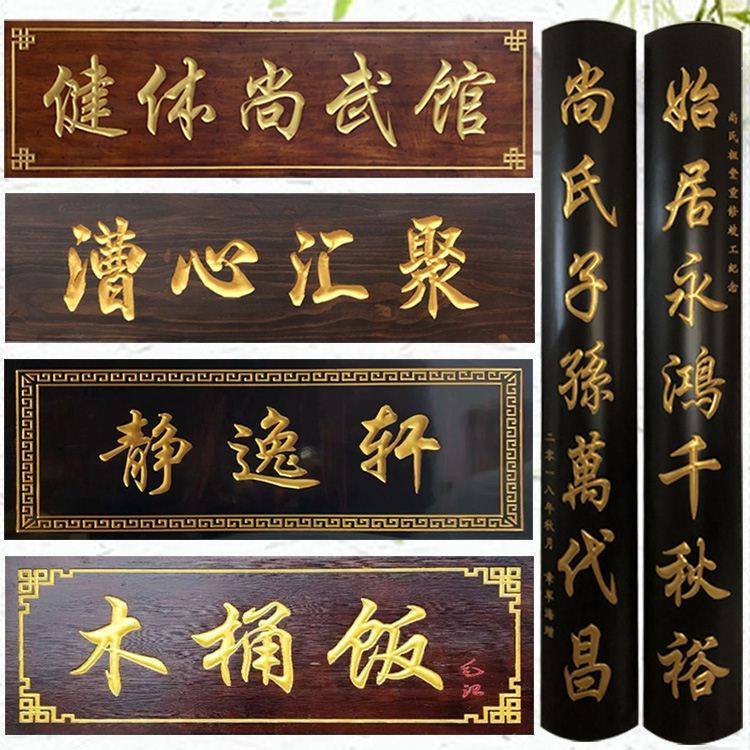 健体尚武馆
漕心汇聚
静逸轩
木桶饭
始居永鴻千秋裕
尚氏祖堂重修竣工纪念
尚氏子孫萬代昌
二零一八年秋月